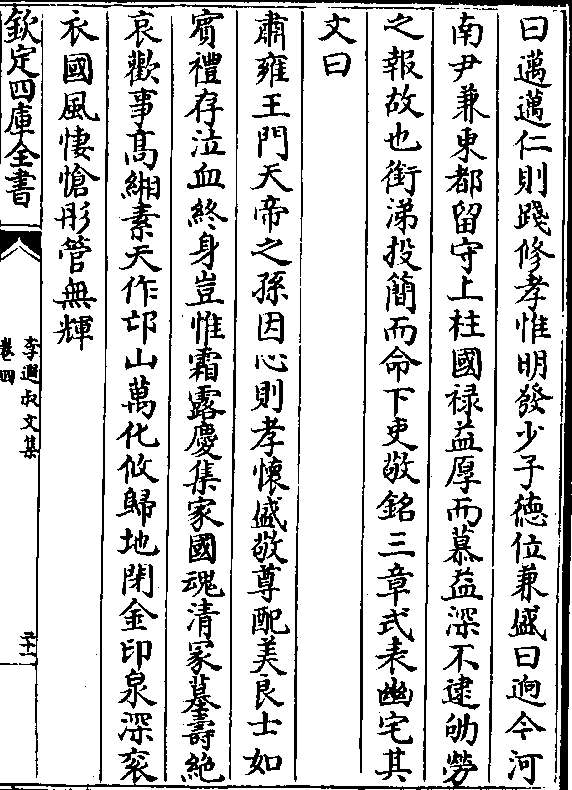 曰邁邁仁則踐修孝惟明發少子德位兼盛曰迥今河
南尹兼東都留守上柱國禄益厚而慕益深不逮劬勞
之報故也銜涕投簡而命下吏敬銘三章式表幽宅其
文曰
肅雍王門天帝之孫因心則孝懷盛敬尊配美良士如
賓禮存泣血終身豈惟霜露慶集家國魂清冢墓壽絶
哀歡事高緗素天作邙山萬化攸歸地閉金印泉深衮
衣國風悽愴彤管無輝
欽定四庫全書
李遐叔文集
卷四